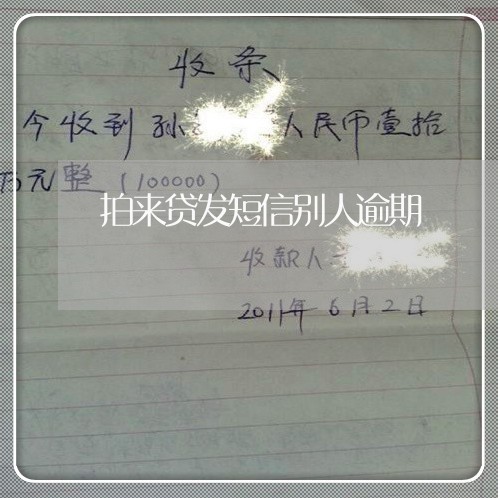 收条
今收到孙人民币壹拾
万元整（100000）
拍来贷发短信别人逾期
收款人
2011年6月2日